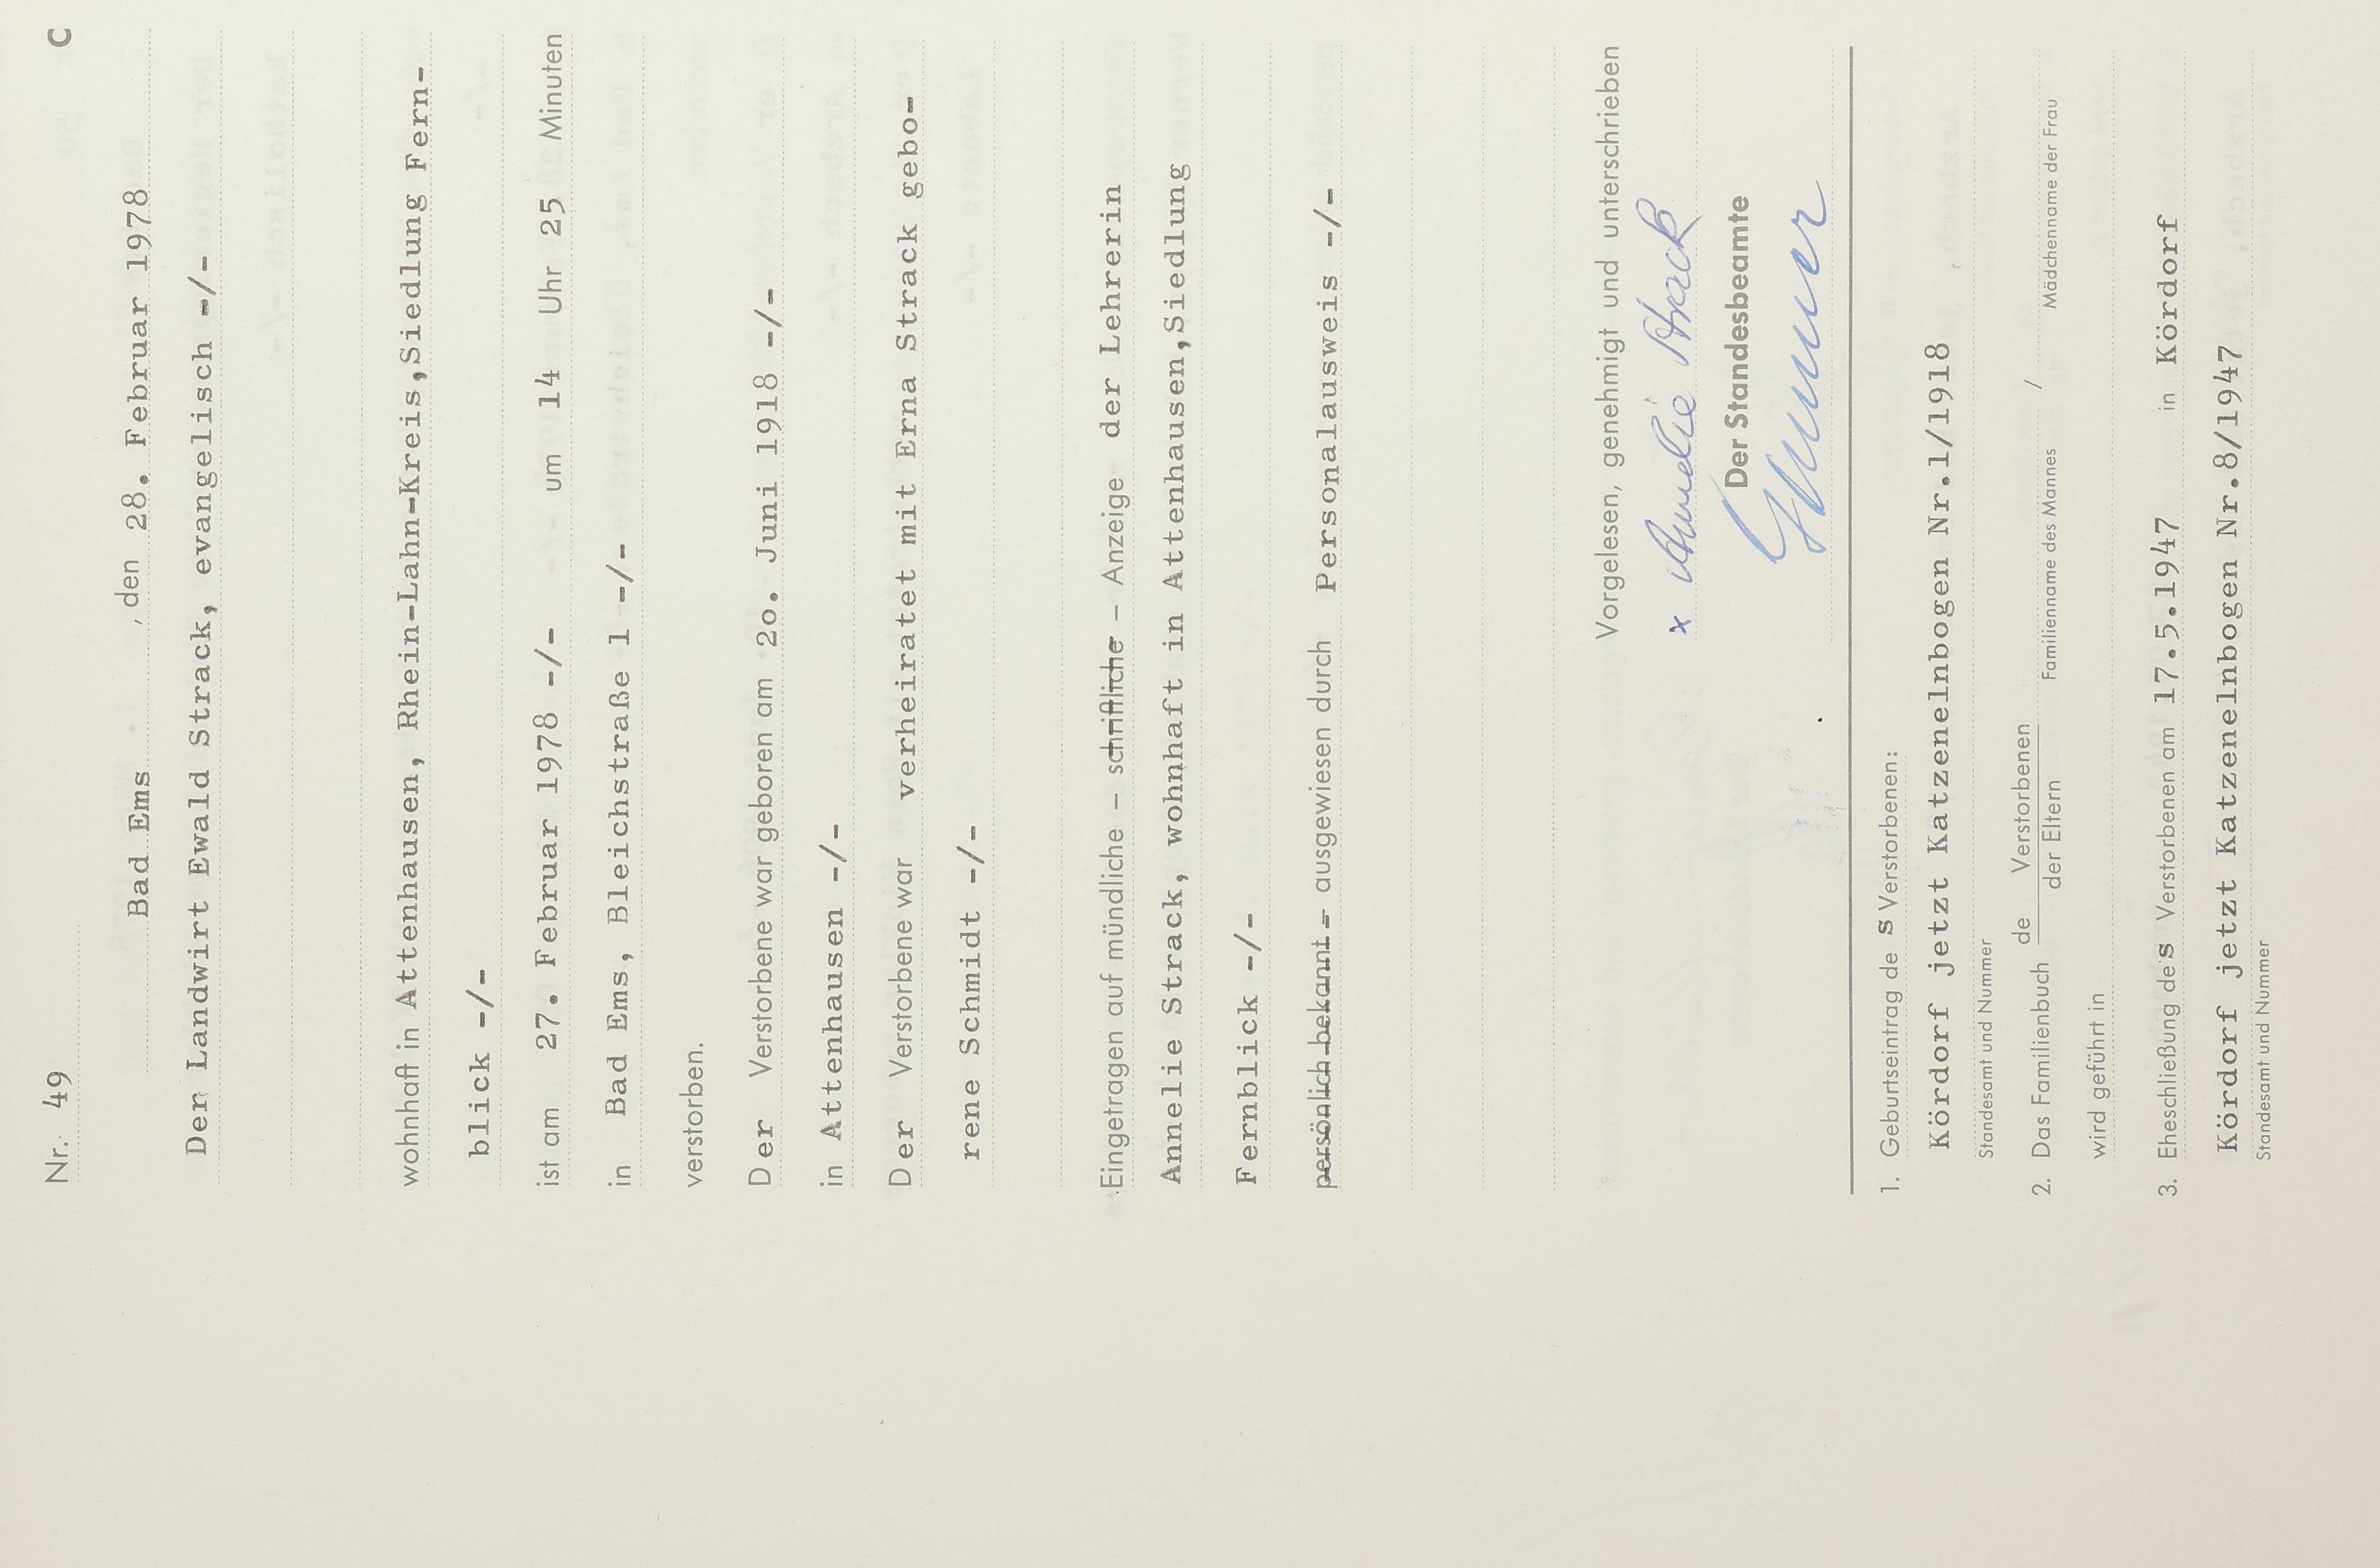 Nr. 49 C
Bad Ems , den 28. Februar 1978
Der Landwirt Ewald Strack, evangelisch -/-
wohnhaft in Attenhausen, Rhein-Lahn-Kreis,Siedlung Fern-
blick -/-
ist am 27. Februar 1978 -/- um 14 Uhr 25 Minuten
in Bad Ems, Bleichstraße 1 -/-
verstorben.
Der Verstorbene war geboren am 2o. Juni 1918 -/-
in Attenhausen -/-
Der Verstorbene war verheiratet mit Erna Strack gebo-
rene Schmidt -/-
Eingetragen auf mündliche – schriftliche – Anzeige der Lehrerin
Annelie Strack, wohnhaft in Attenhausen,Siedlung
Fernblick -/-
persönlich bekannt – ausgewiesen durch Personalausweis -/-
Vorgelesen, genehmigt und unterschrieben
x Annelie Strack
Der Standesbeamte
1. Geburtseintrag de s Verstorbenen:
Kördorf jetzt Katzenelnbogen Nr.1/1918
Standesamt und Nummer
2. Das Familienbuch de Verstorbenen /
der Eltern Familienname des Mannes Mädchenname der Frau
wird geführt in
3. Eheschließung des Verstorbenen am 17.5.1947 in Kördorf
Kördorf jetzt Katzenelnbogen Nr.8/1947
Standesamt und Nummer